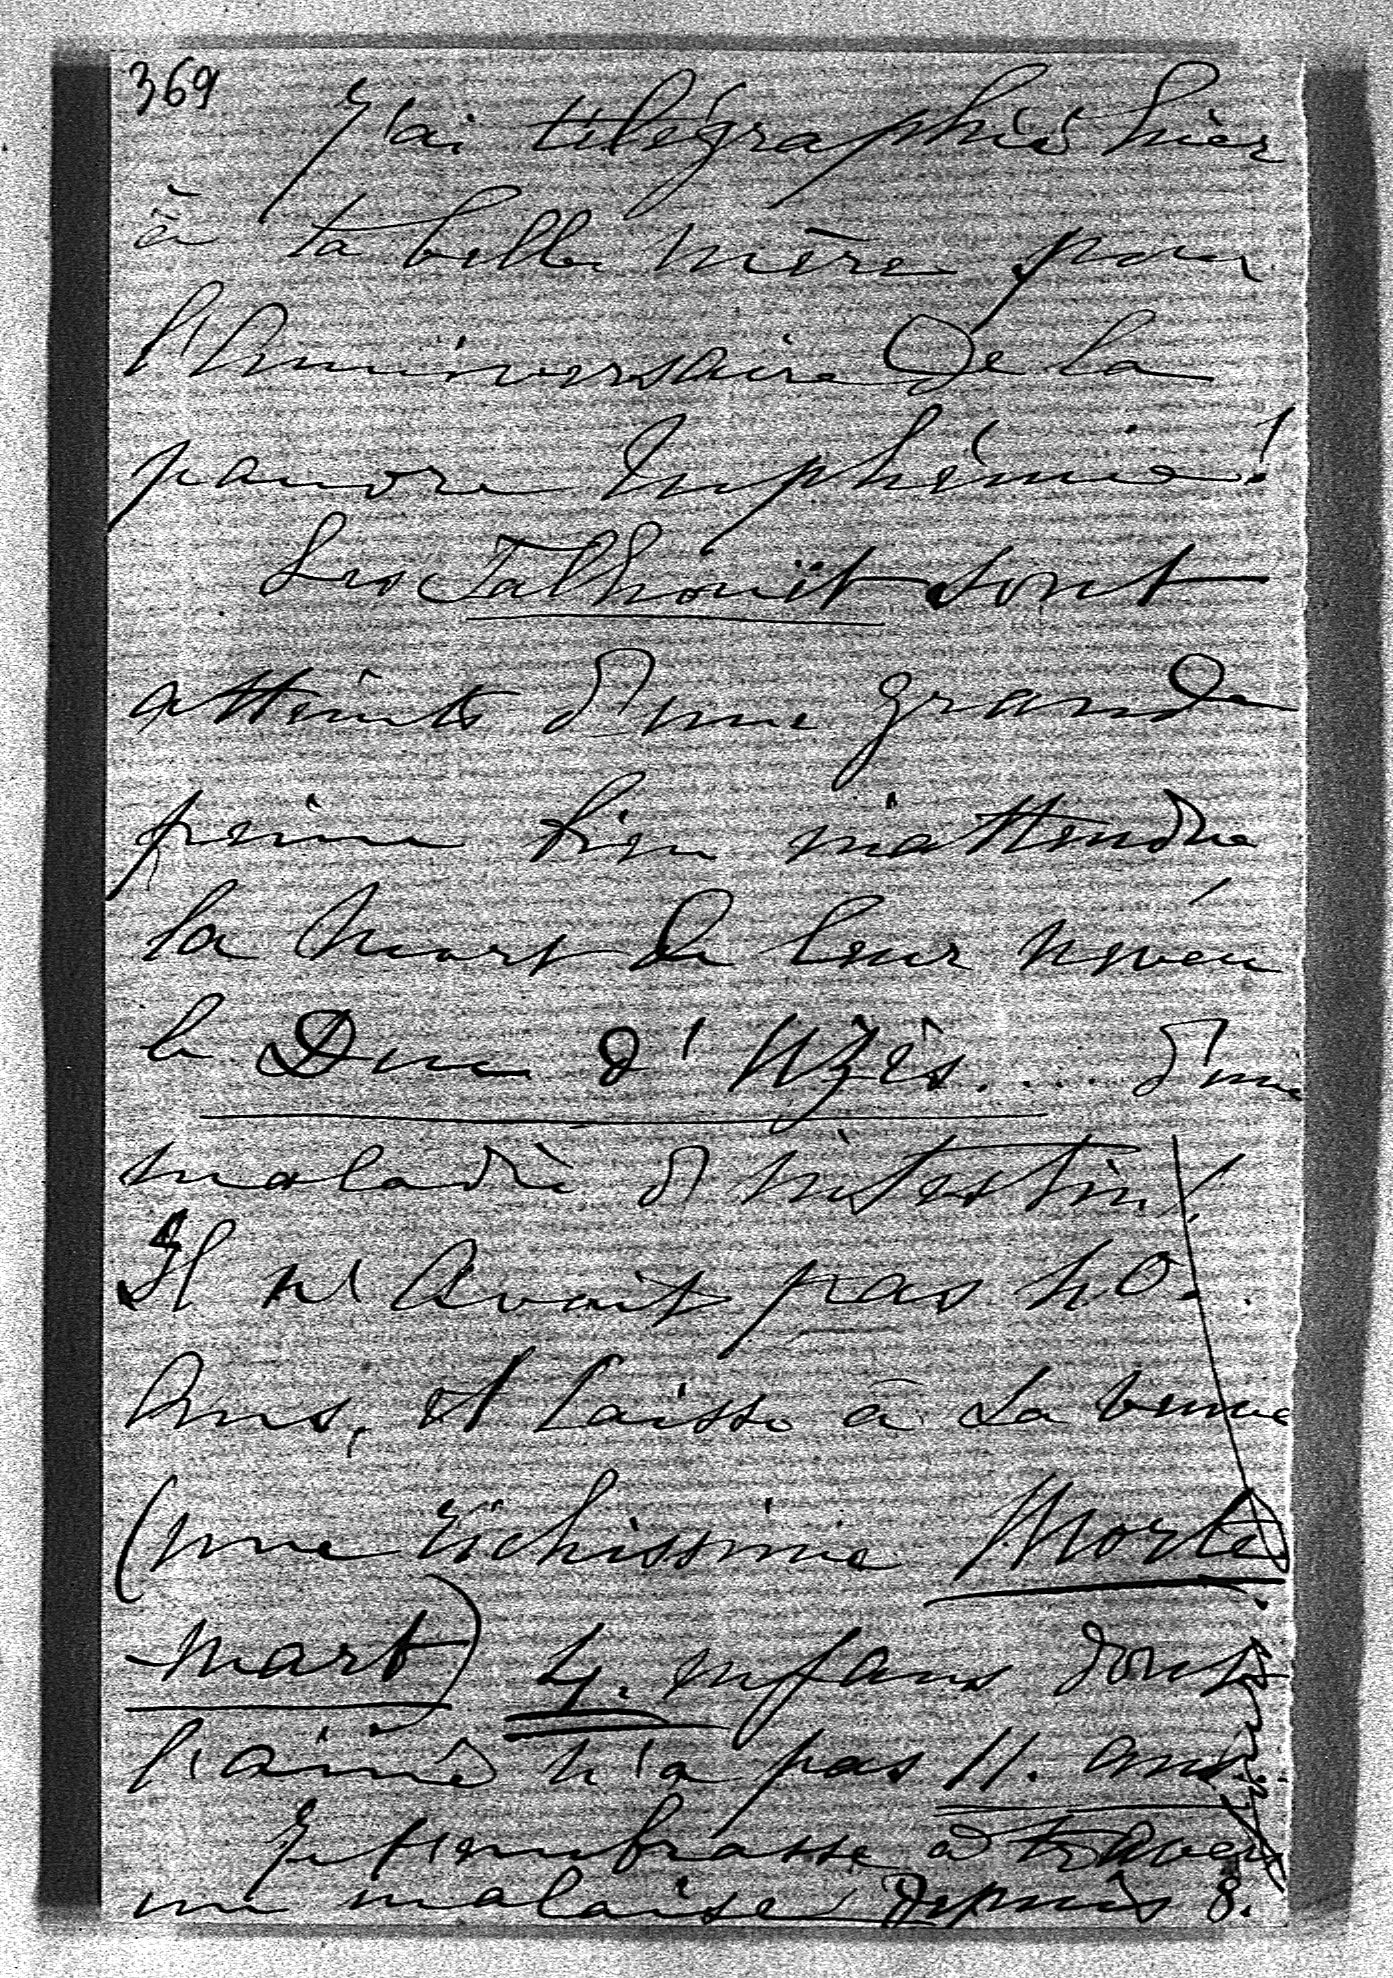 369
J'ai télégraphié hier
à ta belle mère pour
l'Anniversaire de la
pauvre Euphémie!
Les Talhouët sont
atteints d'une grande
peine bien inattendue
la mort de leur neveu
le Duc d'Uzès.... d'une
maladie d'intestins!
Il n'Avait pas 40.
Ans, et laisse à sa veuve
(une richissime Morte
mart) 4. enfans dont
l'ainé n'a pas 11. ans.
Je t'embrasse à travers
un malaise depuis 8.